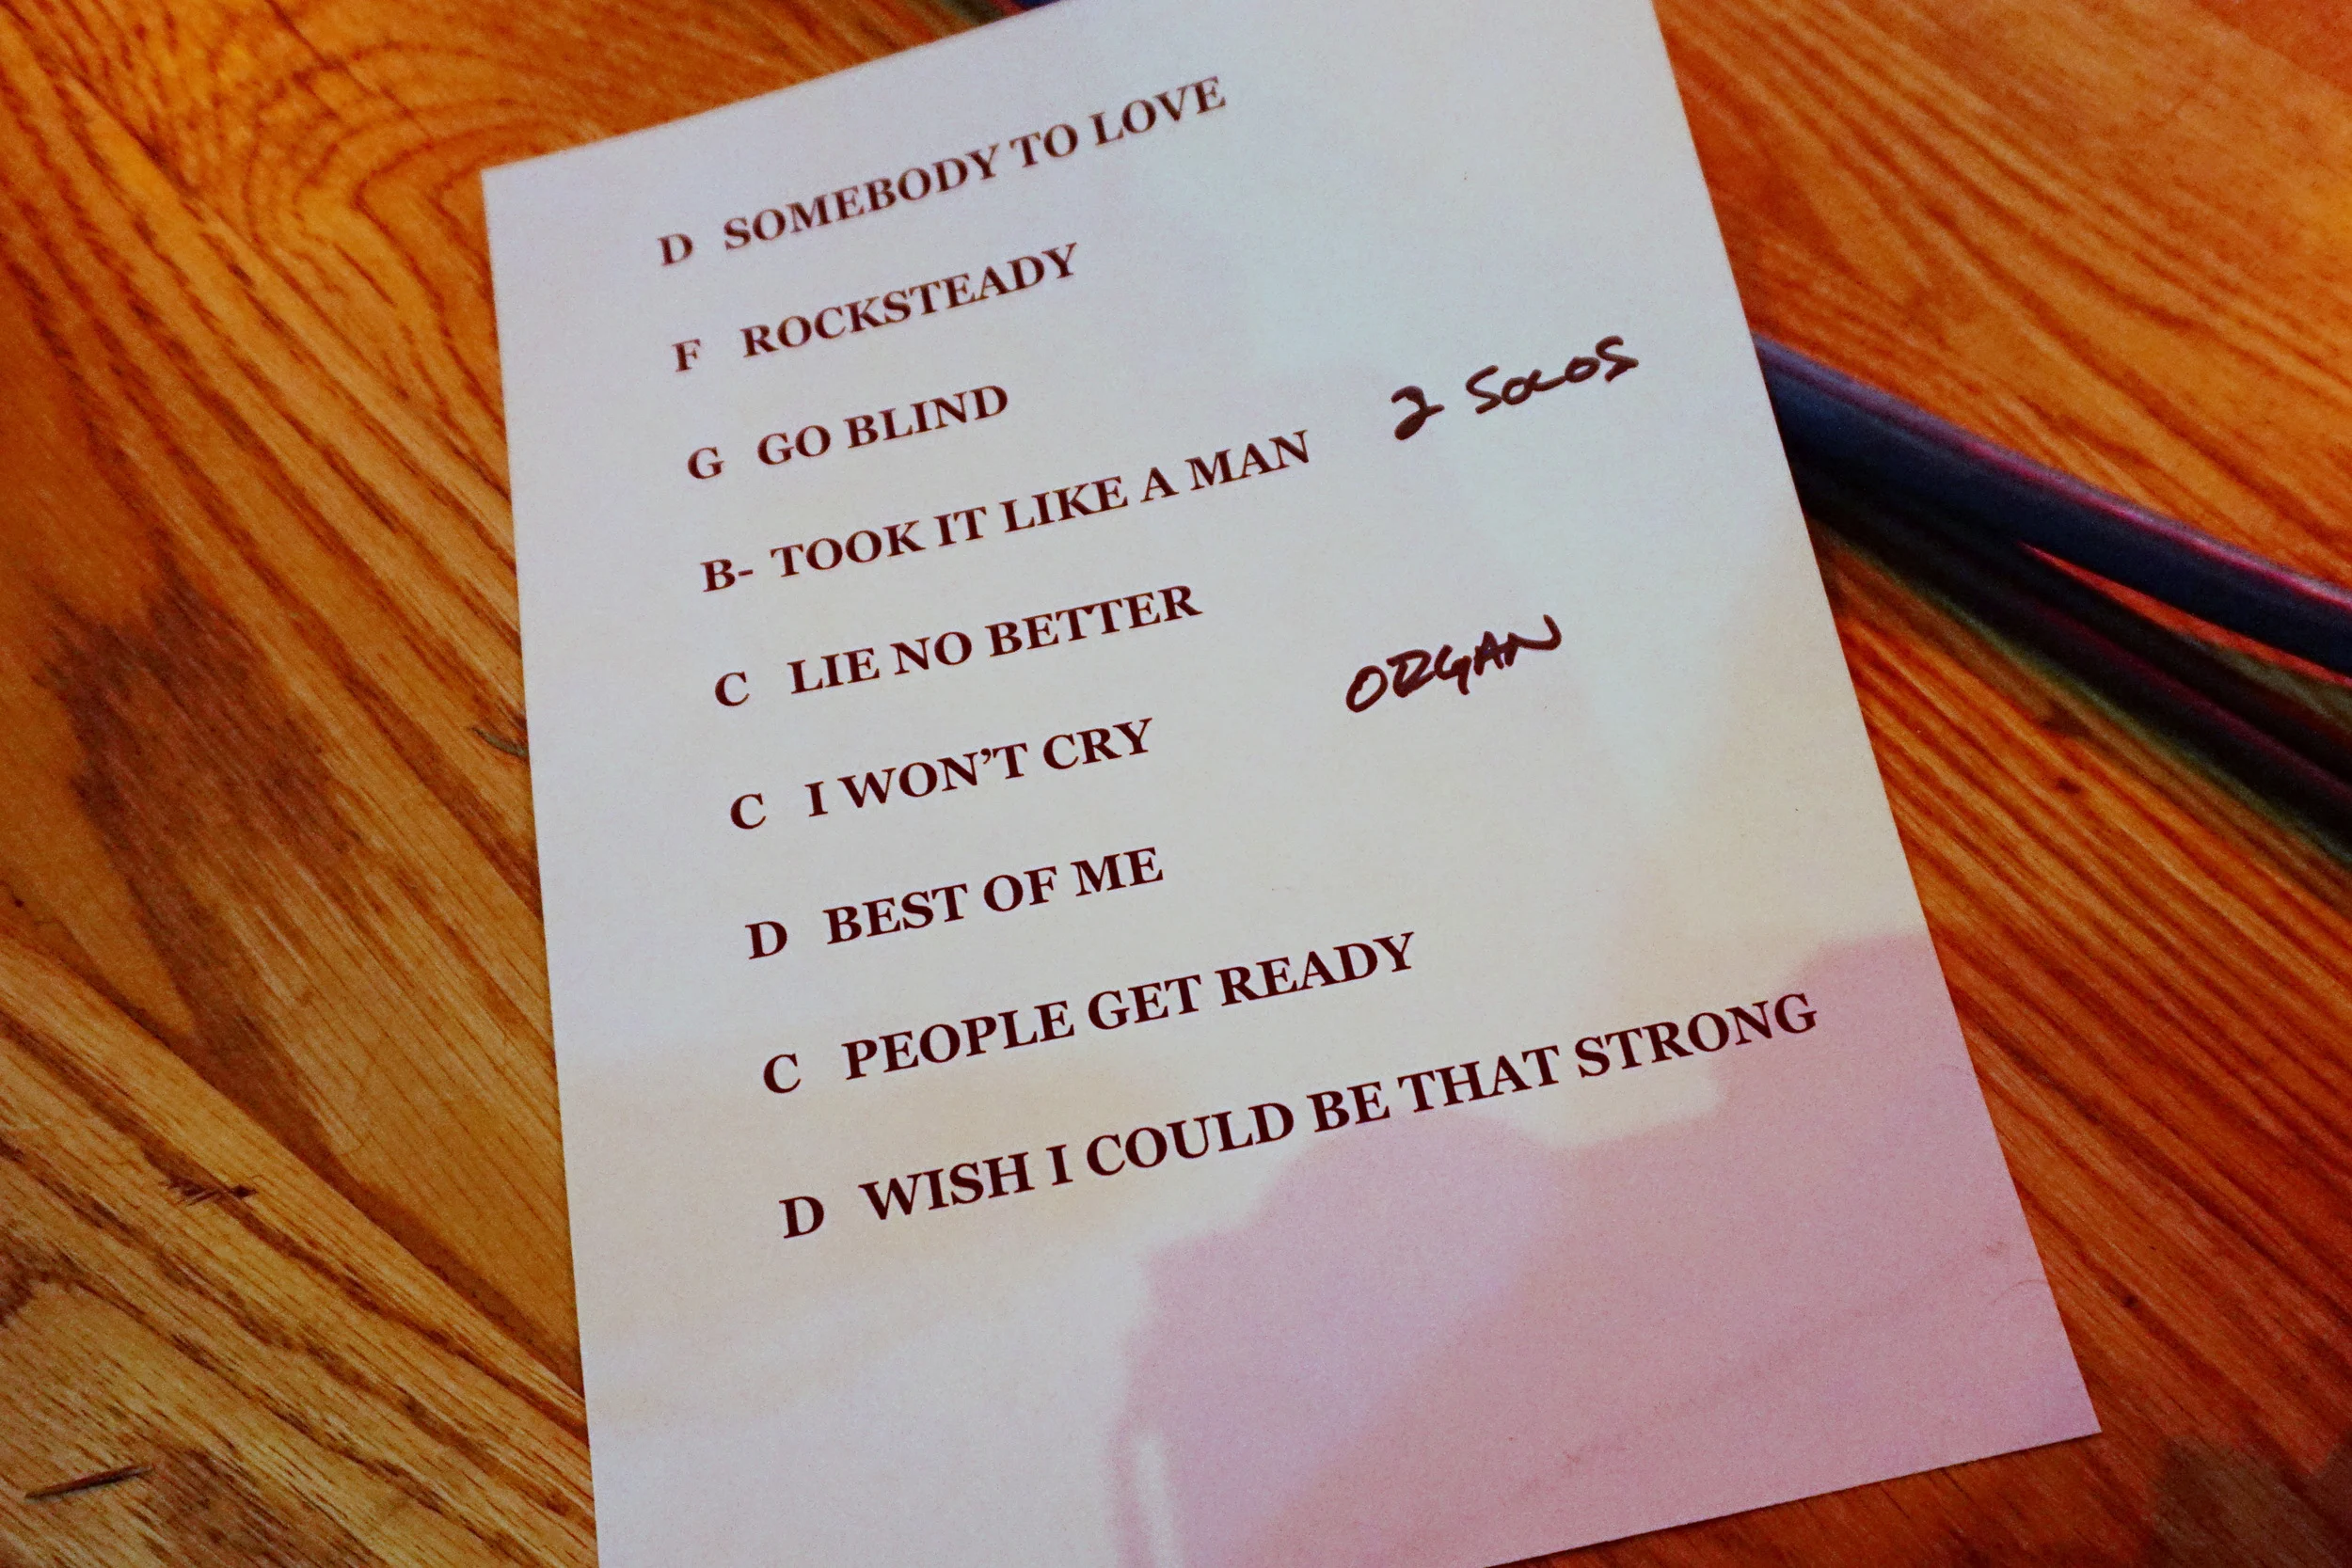 D SOMEBODY TO LOVE
F ROCKSTEADY
G GO BLIND
B- TOOK IT LIKE A MAN 2 SOLOS
C LIE NO BETTER
C I WON'T CRY ORGAN
D BEST OF ME
C PEOPLE GET READY
D WISH I COULD BE THAT STRONG